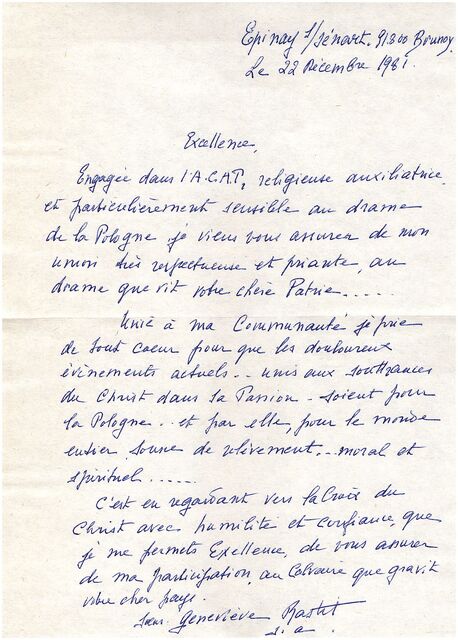 Epinay s/Sénart. 91800 Brunoy.
Le 22 Décembre 1981.
Excellence,
Engagée dans l'A.C.A.T, religieuse auxiliatrice
et particulièrement sensible au drame
de la Pologne, je viens vous assurer de mon
union très respectueuse et priante, au
drame que vit votre chère Patrie.....
Unie à ma Communauté je prie
de tout coeur pour que les douloureux
évènements actuels.. unis aux souffrances
du Christ dans sa Passion - soient pour
la Pologne.. et par elle, pour le monde
entier source de relèvement.. moral et
spirituel.....
C'est en regardant vers la Croix du
Christ avec humilité et confiance, que
je me permets Exellence, de vous assurer
de ma participation, au Calvaire que gravit
votre cher pays.
Soeur Geneviève